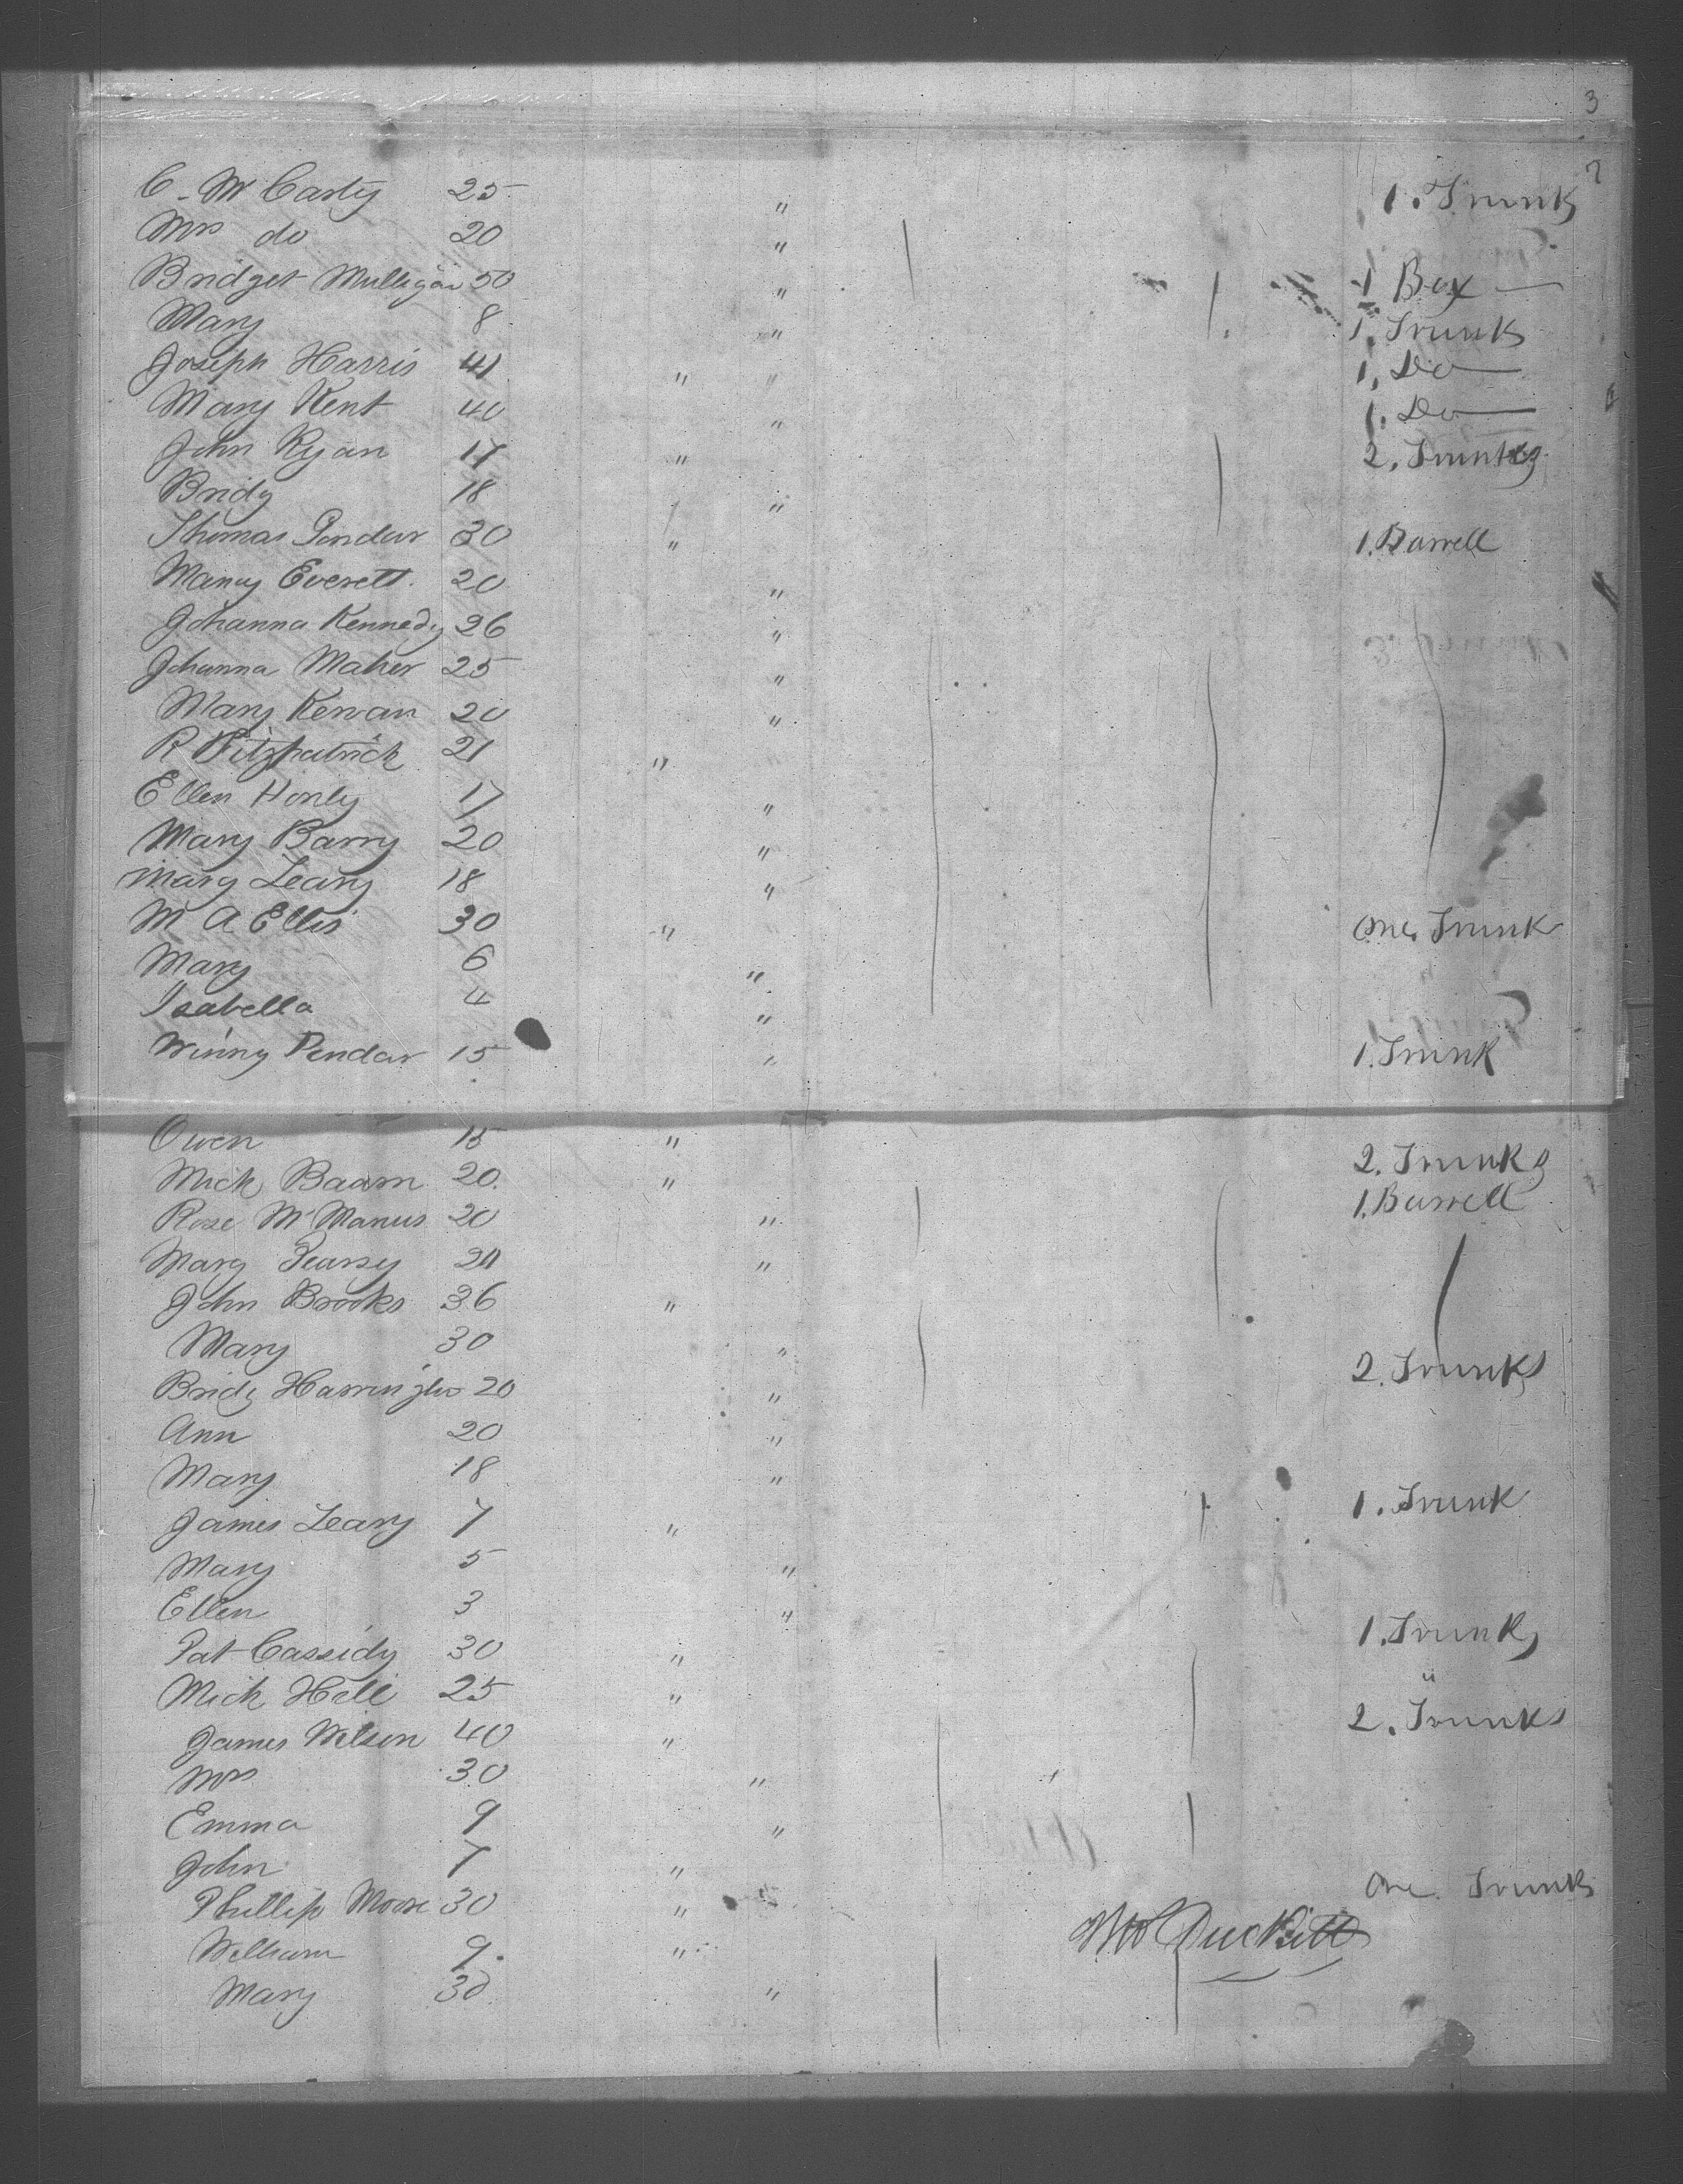 3
2
C. McCarty 25 " 1. Trunk
Mrs do 20 "
Bridget Mulligan 50 " 1 Box —
Mary 8 " 1. Trunk
Joseph Harris 41 " " 1. Do —
Mary Kent 40 " 1. Do —
John Ryan 17 " 2. Trunks
Bridy 18 "
Thomas Pendar 30 " 1. Barrell
Mary Everett. 20 "
Johanna Kennedy 26 "
Johanna Maher 25 "
Mary Kervan 20 "
R Fitzpatrick 21 "
Ellen Honly 17 "
Mary Barry 20 "
Mary Leary 18 "
M A Ellis 30 " One Trunk
Mary 6 "
Isabella 4 "
Winny Pendar 15 " 1. Trunk
Owen 15 " 2. Trunks
Mick 20. " 1. Barrell
Rose McManus 20 "
Mary Pearsy "
John Brooks 36 "
Mary 30 " 2. Trunks
Bridy Harrington 20 "
Ann 20 "
Mary 18 " 1. Trunk
James Leary 7 "
Mary 5 "
Ellen 3 " 1. Trunk
Pat Cassidy 30 " "
Mick Hill 25 " 2. Trunks
James Wilson 40 "
Mrs 30 "
Emma 9 "
John 7 " One Trunk
Phillip Moore 30 "
William 9. "
Mary 30 "